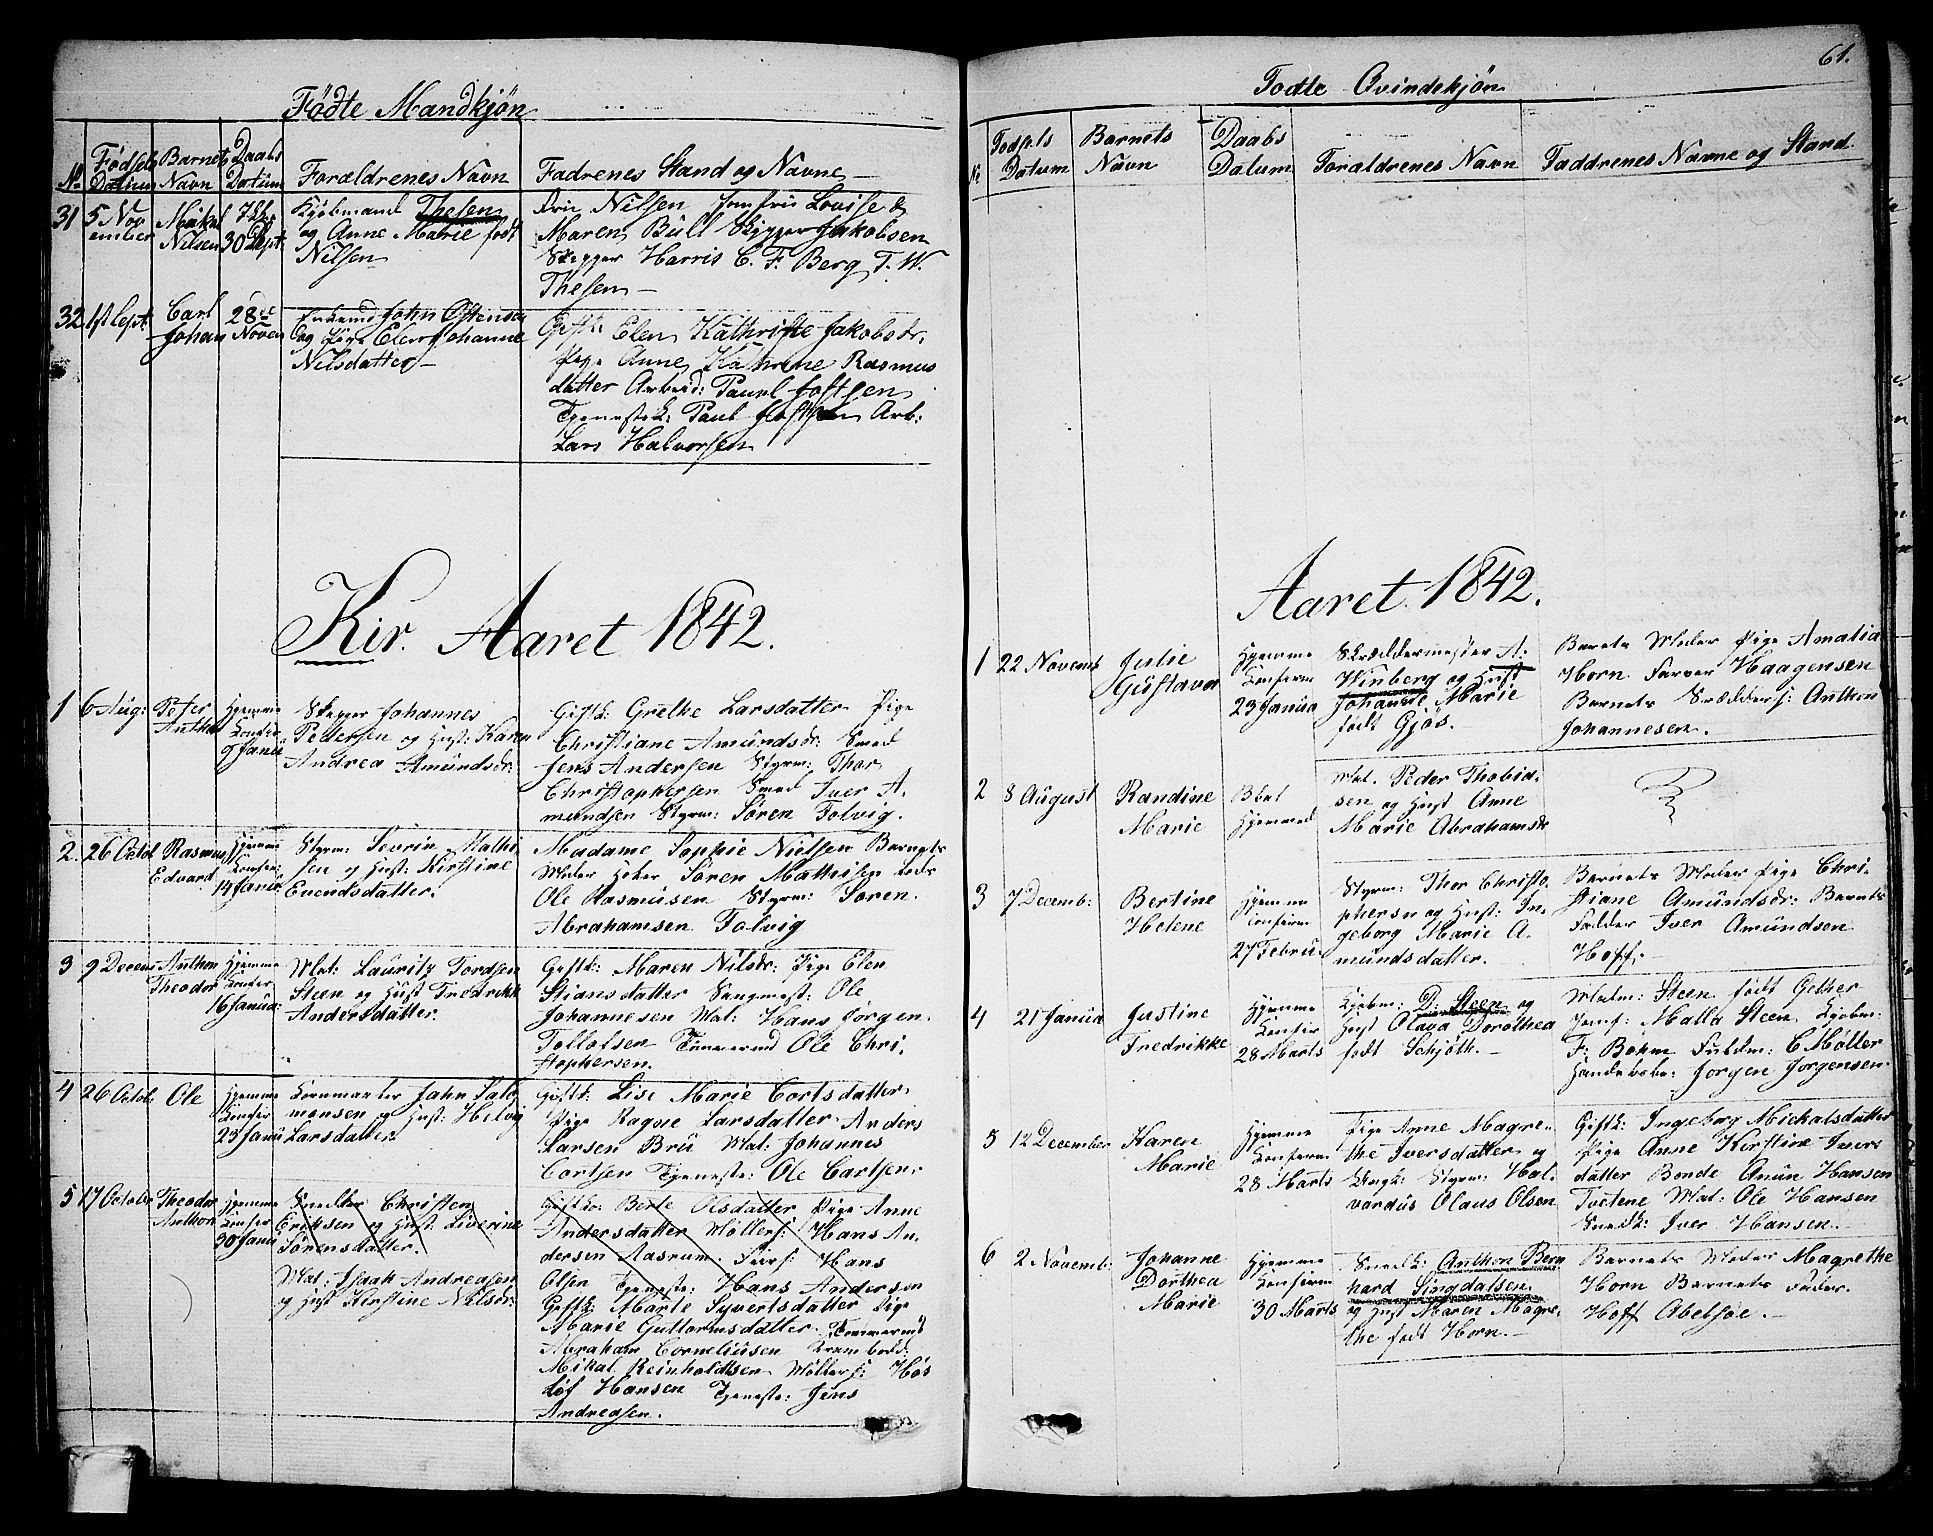 Fødte Mandkjøn
No
Fødsels Datum
Barnets Navn
Daabs Datum
Forældrenes Navn
Fadrenes Stand og Navne
31
5 November
Nilsen
Kjøbmand Thesen
og Anne Marie født
Nilsen
Nilsen Jomfru Lovise &
Maren Bull Skipper Jakobsen
Skipper Harris C. F. Berg T. W.
Thesen
32
1st Sept
Carl
Johan
28de
Noven
John Østensen
og Pige Elen Johanne
Nilsdatter
Gftk: Elen Kathrine Jakobsdr.
Pige Anne Kathrine Rasmus
datter Arbeid: Pauel
Tjenestek: Paul Arb:
Lars Halvorsen
Kir. Aaret 1842.
1
6 Aug:
Peter
Anthon
Hjemme
Confer
9 Janu
Skipper Johannes
Pedersen og Hust: Karen
Andrea Amundsdr:
Giftk: Grethe Larsdatter Pige
Christiane Amundsdr: Smed
Jens Andersen Styrm: Thor
Christophersen Smed Iver A.
mundsen Styrm: Søren Folvig.
2.
26 Octob
Rasmus
Edvard
Hjemme
Confer
14 Janu
Styrm: Sevrin Mathi
sen og Hust: Kirstine
Enendsdatter.
Madame Sophie Nielsen Barnets
Moder Søren Mathisen
Ole Rasmusen Styrm: Søren.
Abrahamsen Folvig
3
9 Decem
Anthon
Theodor
Hjemme
Confer
16 Janua:
Mat: Lauritz Tordsen
Steen og Hust Fredrikk
Andersdatter.
Giftk: Maren Nilsdr: Pige Elen
Stiansdatter Ole
Johannesen Mat: Hans Jørgen.
Tollofsen Tømmermd Ole Chri.
stophersen.
4
26 Octob:
Ole
Hjemme
Confer
23 Janu
John Salo
monsen og Hust: Helvig
Larsdatter
Giftk: Lise Marie Cortsdatter
Pige Ragne Larsdatter Anders
Larsen Bru Mat: Johannes
Cortsen Tjeneste: Ole Carlsen.
5
17 October
Theodor
Anthon
Hjemme
Confer
30 Janu
Christen
Eriksen og Hust: Liverine
Sørensdatter.
Mat: Isaak Andreasen
og Hust Kirstine Nilsdr:
Giftko: Berte Olsdatter Pige Anne
Andersdatter Møllers: Hans An
dersen Aasrum. Hans
Olsen Tjeneste: Hans Andersen
Giftk: Marte Syvertsdatter Pige
Marie Guttormsdatter Tømmermd
Abraham Corneliusen
Mikal Reinholdtsen Møllers: Hos
Løf Hansen Tjeneste: Jens
Andreasen.
61.
Fodte Qvindekjøn
No
Fodsels Datum
Barnets Navn
Daabs Datum
Forældrenes Navn
Faddrenes Navne og Stand.
Aaret 1842.
1
22 Novemb
Julie
Gustava
Hjemme
Conferm
23 Janua
Skræddermester A.
Winberg og Hust
Johanne Marie
født Gjøs.
Barnets Moder Pige Amalia
Horn Farver Haagensen
Barnets Anthon
Johannesen.
2
8 August
Randine
Marie
Hjemmed
Mat. Peder Thobia-
sen og Hust Anne
Marie Abrahamsdr
3
7 Decemb:
Bertine
Helene
Hjemme
Conferm
27 Februa
Styrm: Thor Christo-
phersen og Hust: In.
geborg Marie A.
mundsdatter.
Barnets Moder Pige Chri-
stiane Amundsdr: Barnets
Fadder Iver Amundsen
Hoff.
4
21 Janua
Justine
Fredrikke
Hjemme
Confer
28 Marts
Kjøbm: D. Steen og
Hust Olava Dorothea
født Schjøth.
Madm: Steen født Gether
Jomf: Malla Steen Kjøbm:
F: Bøhm Fuldm: C Møller
Handelsbe: Jørgen Jørgensen
5
12 December
Karen
Marie
Hjemme
Conferm
28 Marts
Pige Anne Magre-
the Iversdatter og
Ungk: Styrm: Hal-
vardus Olaus Olsen
Giftk: Ingeborg Mickalsdatter
Pige Anne Kirstine Ivers
datter Bonde Anun Hansen
Toetene Mat: Ole Hansen
Snedk: Iver Hansen.
6
2 Novemb:
Johanne
Dorthea
Marie
Hjemme
Conferm
30 Marts
Snedk: Anthon Bern
hard Lingdalsen
og Hust Maren Magre.
the født Horn.
Barnets Moder Magrethe
Horn Barnets Fader.
Hoff Abelsøe.